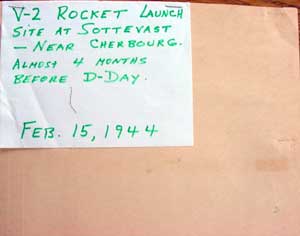 V-2 ROCKET LAUNCH
SITE AT SOTTEVAST
- NEAR CHERBOURG.
ALMOST 4 MONTHS
BEFORE D-DAY.
FEB. 15, 1944